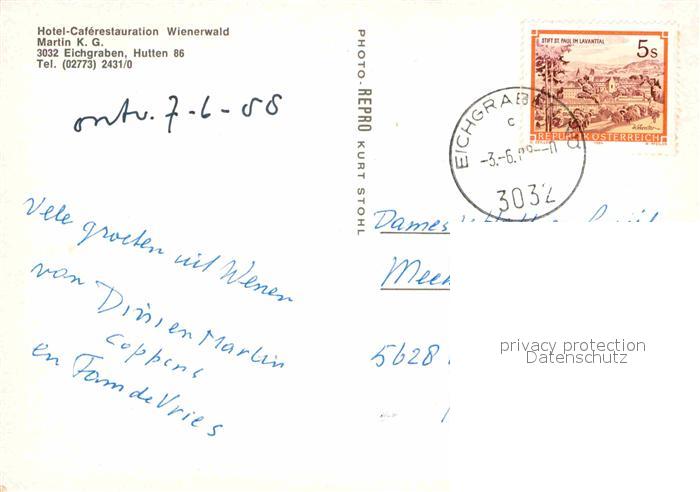 Hotel-Caférestauration Wienerwald
Martin K. G.
3032 Eichgraben, Hutten 86
Tel. (02773) 2431/0
ontv. 7-6-88
Vele groeten uit Wenen
van Dini en Martin
Coppens
en Fam de Vries
PHOTO-REPRO KURT STOHL
STIFT ST. PAUL IM LAVANTTAL
5s
REPUBLIK ÖSTERREICH
EICHGRABEN
c
-3.-6.88
3032
Dames
5628
privacy protection
Datenschutz